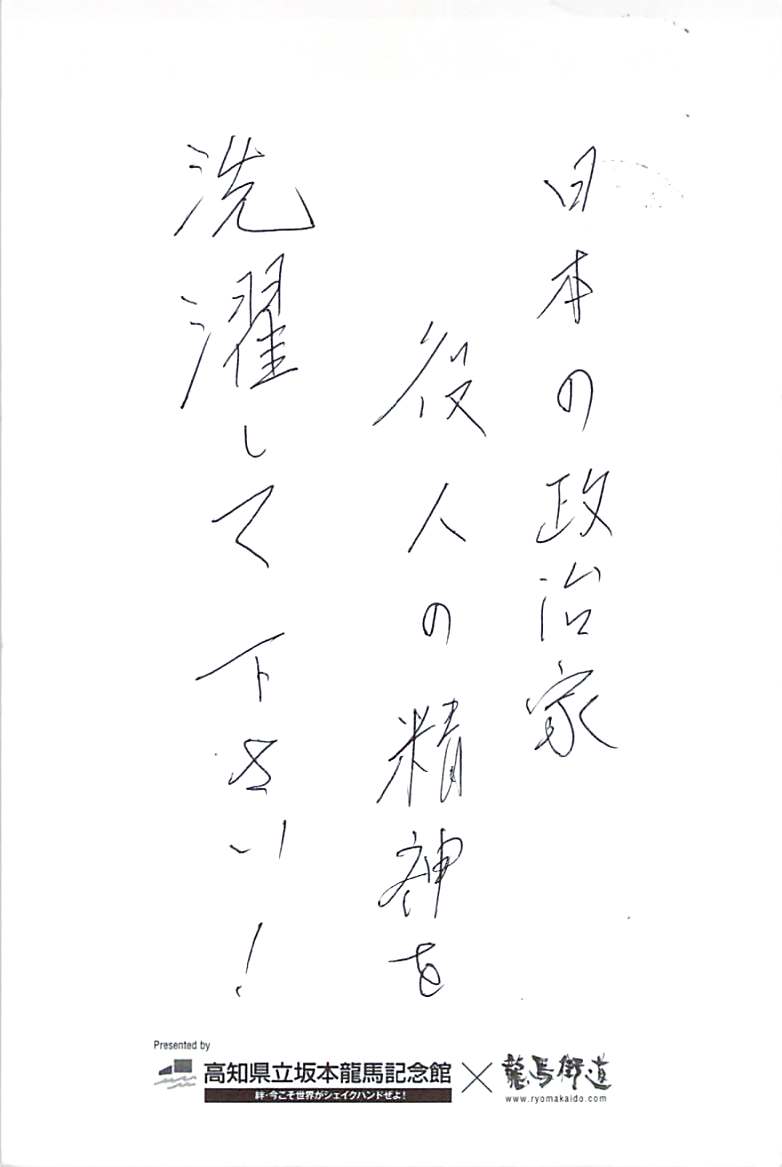 日本の政治家
役人の精神を
洗濯して下さい!
Presented by
高知県立坂本龍馬記念館
絆・今こそ世界がシェイクハンドぜよ!
×
龍馬街道
www.ryomakaido.com